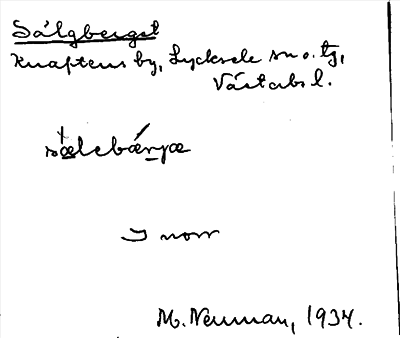 Sälgberget
Knaftens by, Lycksele sn o. tg,
Västerb l.
sælcbærjæ
I norr
M. Neuman, 1934.